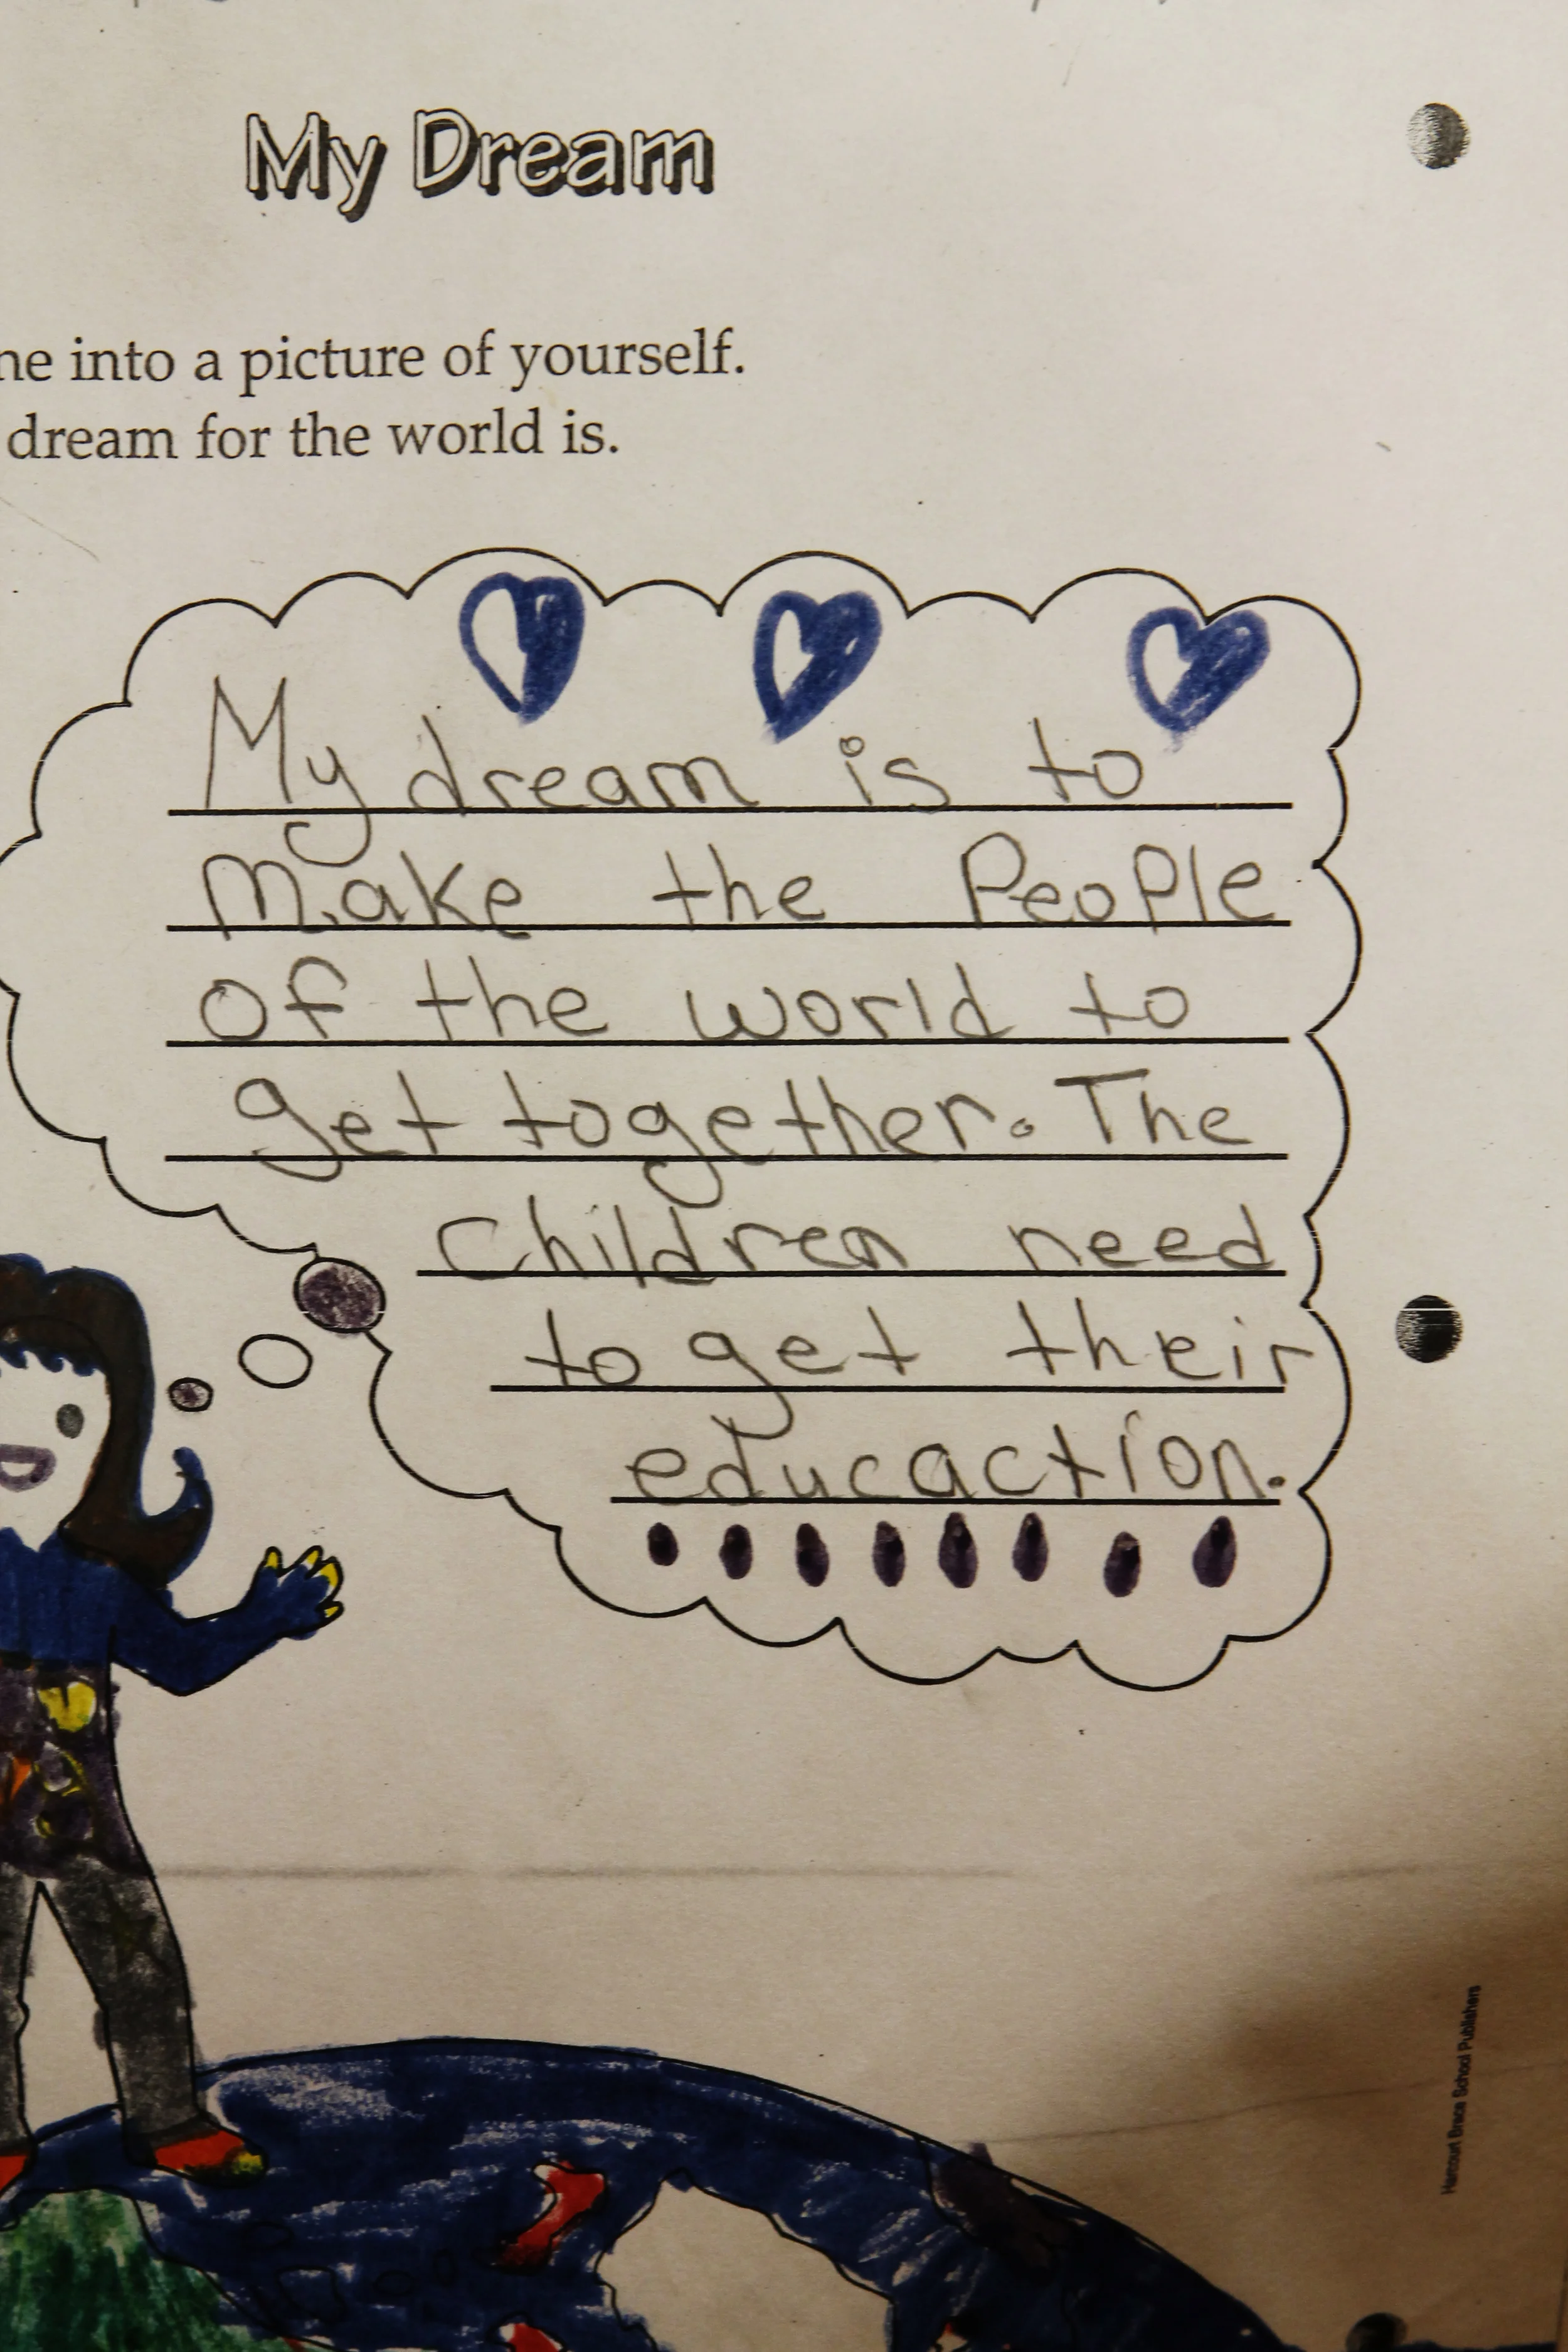 My Dream
ne into a picture of yourself.
dream for the world is.
My dream is to
Make the People
of the world to
get together. The
children need
to get their
educaction.
Harcourt Brace School Publishers